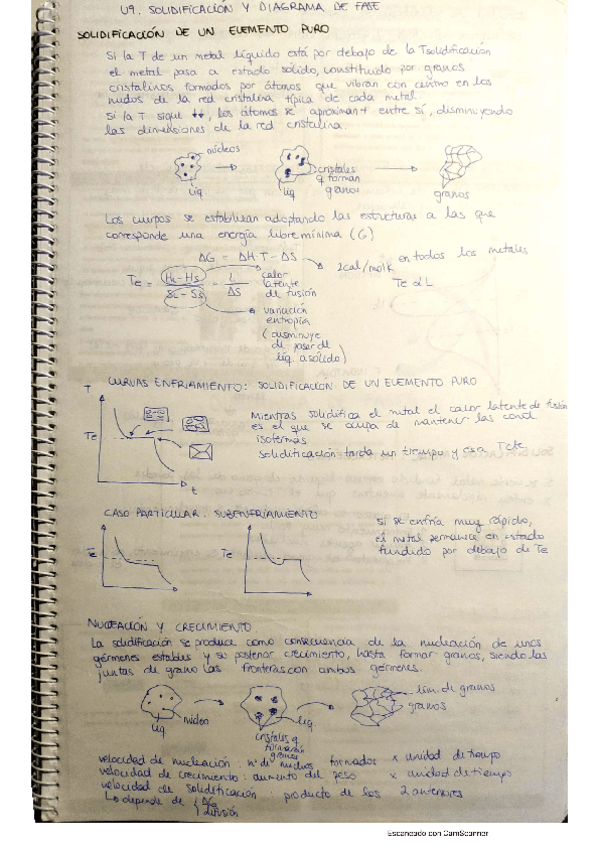 U9. SOLIDIFICACIÓN Y DIAGRAMA DE FASE
SOLIDIFICACIÓN DE UN ELEMENTO PURO
Si la T de un metal líquido está por debajo de la Tsolidificación
el metal pasa a estado sólido, constituido por granos
cristalinos formados por átomos que vibran con centro en los
nudos de la red cristalina típica de cada metal.
Si la T sigue ↓↓, los átomos se aproximan + entre sí, disminuyendo
las dimensiones de la red cristalina.
núcleos
líq
cristales
q forman
granos
líq
granos
Los cuerpos se estabilizan adoptando las estructuras a las que
corresponde una energía libre mínima (G)
ΔG = ΔH·T - ΔS
2cal/molK en todos los metales
Te = HL-HS / SL-SS = L / ΔS
Te α L
calor
latente
de fusión
variación
entropía
(disminuye
de pasar de
líq a sólido)
CURVAS ENFRIAMIENTO: SOLIDIFICACIÓN DE UN ELEMENTO PURO
T
Te
t
Mientras solidifica el metal el calor latente de fusión
es el que se ocupa de mantener las cond
isotermas
solidificación tarda un tiempo y esa Tcte
CASO PARTICULAR. SUBENFRIAMIENTO
Te
Te
Si se enfría muy rápido,
el metal permanece en estado
fundido por debajo de Te
NUCLEACIÓN Y CRECIMIENTO
La solidificación se produce como consecuencia de la nucleación de unos
gérmenes estables y su posterior crecimiento, hasta formar granos, siendo las
juntas de grano las fronteras con ambos gérmenes.
núcleo
líq
líq
cristales q
formarán
granos
lím. de granos
granos
velocidad de nucleación : nº de núcleos formados x unidad de tiempo
velocidad de crecimiento : aumento del peso x unidad de tiempo
velocidad de solidificación : producto de las 2 anteriores
↳ depende de
difusión
Escaneado con CamScanner